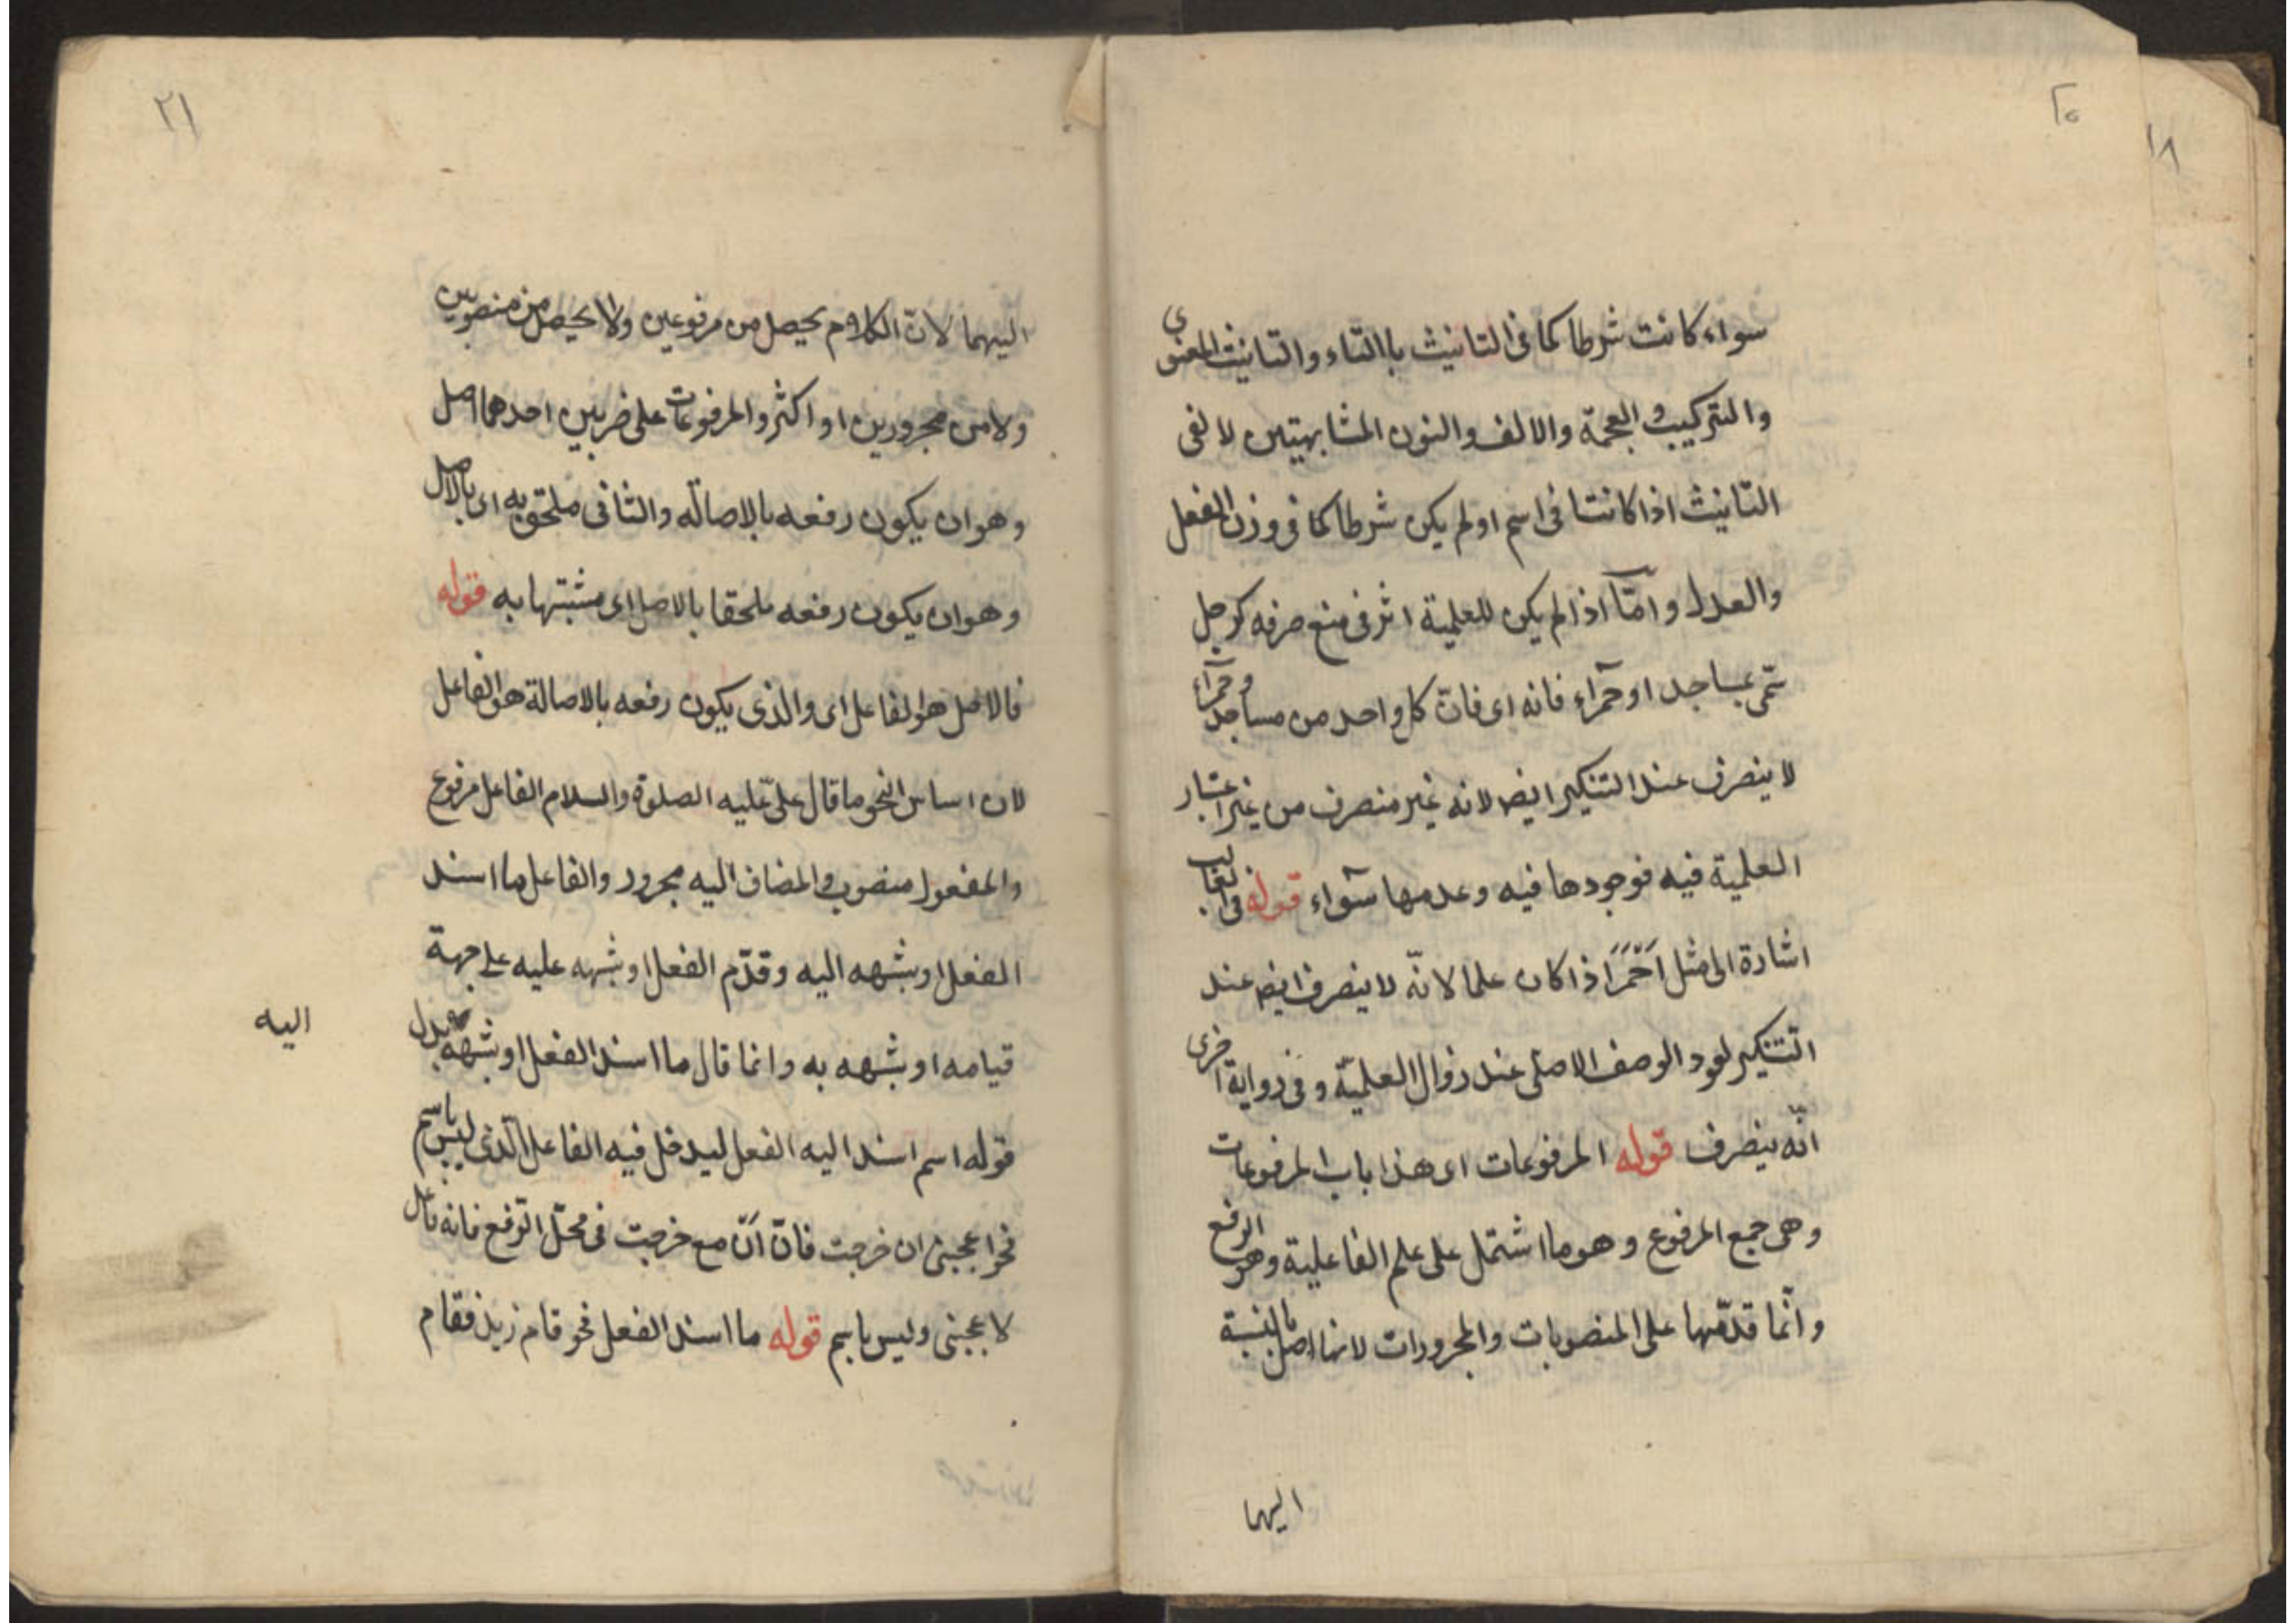 ٢٠
١٨
سواء كانت شرطا كما فى التانيث باالتاء والتانيث المعنوى
والتركيب والعجمة والالف والنون المشابهتين لالفى
التانيث اذا كانتا فى اسم اولم يكن شرطا كما فى وزن الفعل
والعدل وامّا اذا لم يكن للعلمية اثر فى منع صرفه كرجل
سمّى بمساجد اوحمرآء فانه اى فانّ كل واحد من مساجد وحمرآء
لا ينصرف عند التنكير ايضا لانه غير منصرف من غير اعتبار
العلمية فيه فوجودها فيه وعدمها سوآء قوله فى الغالب
اشارة الى مثل اَحْمَرَ اذا كان علما لانّه لا ينصرف ايضا عند
التنكير لعود الوصف الاصلى عند زوال العلميّة وفى رواية اخرى
انّه ينصرف قوله المرفوعات اى هذا باب المرفوعات
وهى جمع المرفوع وهو ما اشتمل على علم الفاعلية وهو الرفع
وانّما قدّمها على المنصوبات والمجرورات لانها اصل بالنسبة
اليهما
٢١
اليهما لانّ الكلام يحصل من مرفوعين ولا يحصل من منصوبين
ولا من مجرورين او اكثر والمرفوعات على ضربين احدهما اصل
وهو ان يكون رفعه بالاصالة والثانى ملحق به اى بالاصل
وهو ان يكون رفعه ملحقا بالاصل اى مشبتها به قوله
فالاصل هو الفاعل اى والذى يكون رفعه بالاصالة هو الفاعل
لان اساس النحو ما قال علىّ عليه الصلوة والسلام الفاعل مرفوع
والمفعول منصوب والمضاف اليه مجرور والفاعل ما اسند
الفعل اوشبهه اليه وقدّم الفعل اوشبهه عليه على جهة
قيامه اوشبهه به وانما قال ما اسند الفعل اوشبهه بدل
اليه
قوله اسم اسند اليه الفعل ليدخل فيه الفاعل الّذى ليس باسم
نحو اعجبنى ان خرجت فانّ اَنّ مع خرجت فى محلّ الرّفع فانه فاعل
لاعجبنى وليس باسم قوله ما اسند الفعل نحو قام زيد فقام